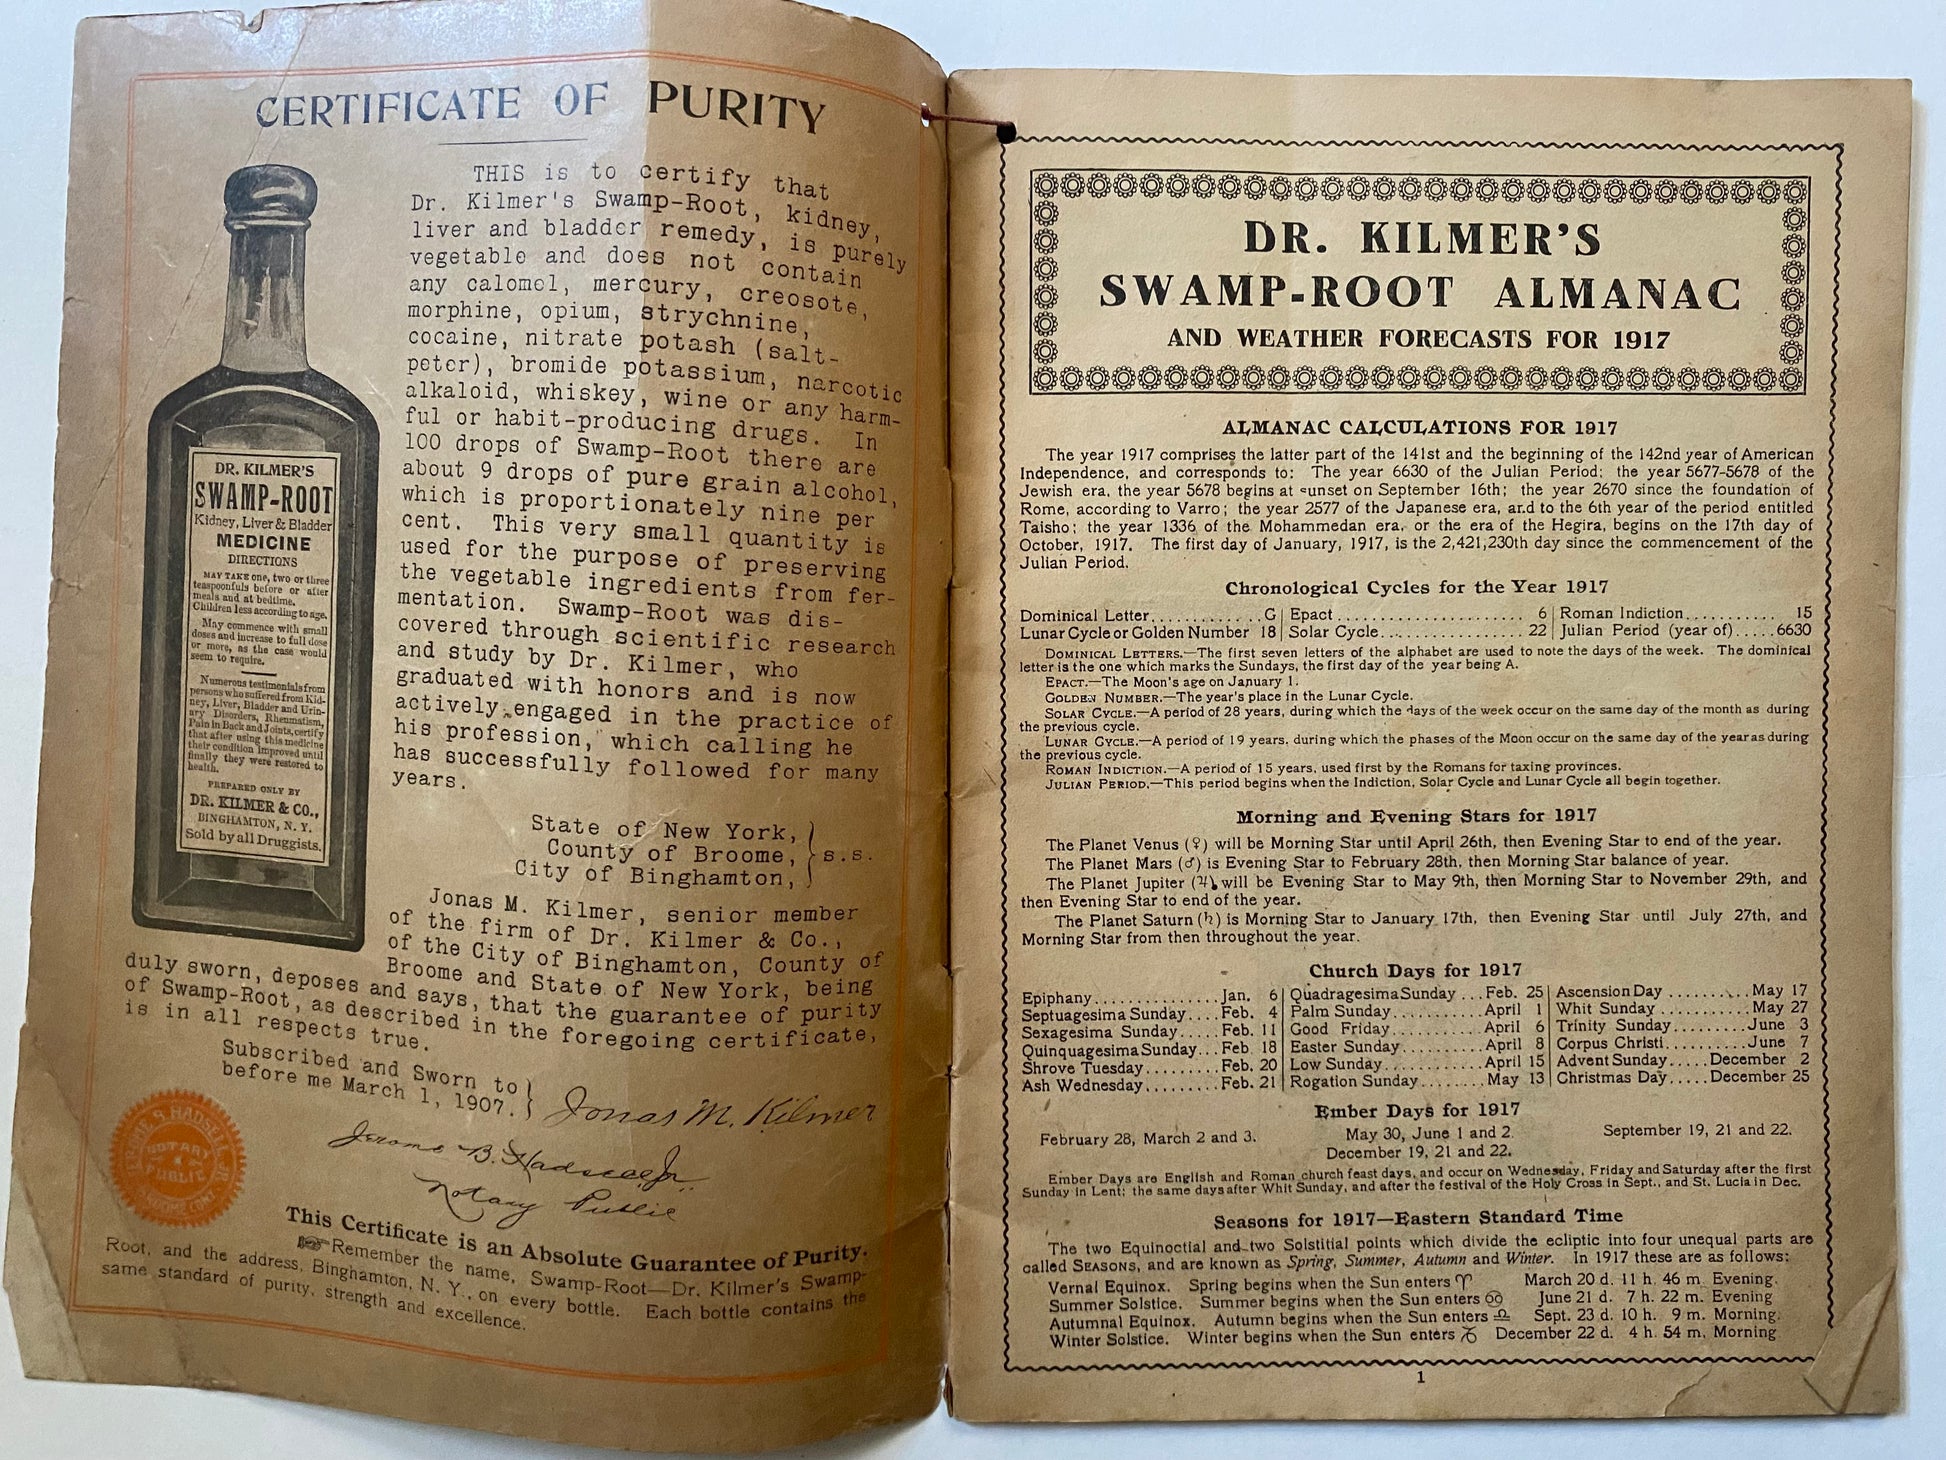 CERTIFICATE OF PURITY
THIS is to certify that
Dr. Kilmer's Swamp-Root, kidney,
liver and bladder remedy, is purely
vegetable and does not contain
any calomel, mercury, creosote,
morphine, opium, strychnine,
cocaine, nitrate potash (salt-
peter), bromide potassium, narcotic
alkaloid, whiskey, wine or any harm-
ful or habit-producing drugs. In
100 drops of Swamp-Root there are
about 9 drops of pure grain alcohol,
which is proportionately nine per
cent. This very small quantity is
used for the purpose of preserving
the vegetable ingredients from fer-
mentation. Swamp-Root was dis-
covered through scientific research
and study by Dr. Kilmer, who
graduated with honors and is now
actively engaged in the practice of
his profession, which calling he
has successfully followed for many
years.
DR. KILMER'S
SWAMP-ROOT
Kidney, Liver & Bladder
MEDICINE
DIRECTIONS
MAY TAKE one, two or three
teaspoonfuls before or after
meals and at bedtime.
Children less according to age.
May commence with small
doses and increase to full dose
or more, as the case would
seem to require.
Numerous testimonials from
persons who suffered from Kid-
ney, Liver, Bladder and Urin-
ary Disorders, Rheumatism,
Pain in Back and Joints, certify
that after using this medicine
their condition improved until
finally they were restored to
health.
PREPARED ONLY BY
DR. KILMER & CO.,
BINGHAMTON, N. Y.
Sold by all Druggists.
State of New York,
County of Broome, } s.s.
City of Binghamton,
Jonas M. Kilmer, senior member
of the firm of Dr. Kilmer & Co.,
of the City of Binghamton, County of
Broome and State of New York, being
duly sworn, deposes and says, that the guarantee of purity
of Swamp-Root, as described in the foregoing certificate,
is in all respects true.
Subscribed and Sworn to
before me March 1, 1907. } Jonas M. Kilmer
Jerome B. Hadsell Jr.
Notary Public
JEROME B. HADSELL JR.
NOTARY
PUBLIC
This Certificate is an Absolute Guarantee of Purity.
Remember the name, Swamp-Root—Dr. Kilmer's Swamp-
Root, and the address, Binghamton, N. Y., on every bottle. Each bottle contains the
same standard of purity, strength and excellence.
DR. KILMER'S
SWAMP-ROOT ALMANAC
AND WEATHER FORECASTS FOR 1917
ALMANAC CALCULATIONS FOR 1917
The year 1917 comprises the latter part of the 141st and the beginning of the 142nd year of American
Independence, and corresponds to: The year 6630 of the Julian Period; the year 5677-5678 of the
Jewish era, the year 5678 begins at sunset on September 16th; the year 2670 since the foundation of
Rome, according to Varro; the year 2577 of the Japanese era, and to the 6th year of the period entitled
Taisho; the year 1336 of the Mohammedan era, or the era of the Hegira, begins on the 17th day of
October, 1917. The first day of January, 1917, is the 2,421,230th day since the commencement of the
Julian Period.
Chronological Cycles for the Year 1917
Dominical Letter............ G | Epact ........................ 6 | Roman Indiction........... 15
Lunar Cycle or Golden Number 18 | Solar Cycle................. 22 | Julian Period (year of).....6630
DOMINICAL LETTERS.—The first seven letters of the alphabet are used to note the days of the week. The dominical
letter is the one which marks the Sundays, the first day of the year being A.
EPACT.—The Moon's age on January 1.
GOLDEN NUMBER.—The year's place in the Lunar Cycle.
SOLAR CYCLE.—A period of 28 years, during which the days of the week occur on the same day of the month as during
the previous cycle.
LUNAR CYCLE.—A period of 19 years, during which the phases of the Moon occur on the same day of the year as during
the previous cycle.
ROMAN INDICTION.—A period of 15 years, used first by the Romans for taxing provinces.
JULIAN PERIOD.—This period begins when the Indiction, Solar Cycle and Lunar Cycle all begin together.
Morning and Evening Stars for 1917
The Planet Venus (♀) will be Morning Star until April 26th, then Evening Star to end of the year.
The Planet Mars (♂) is Evening Star to February 28th, then Morning Star balance of year.
The Planet Jupiter (♃) will be Evening Star to May 9th, then Morning Star to November 29th, and
then Evening Star to end of the year.
The Planet Saturn (♄) is Morning Star to January 17th, then Evening Star until July 27th, and
Morning Star from then throughout the year.
Church Days for 1917
Epiphany...............Jan. 6 | Quadragesima Sunday ...Feb. 25 | Ascension Day ..........May 17
Septuagesima Sunday....Feb. 4 | Palm Sunday...........April 1 | Whit Sunday ...........May 27
Sexagesima Sunday.....Feb. 11 | Good Friday..........April 6 | Trinity Sunday.........June 3
Quinquagesima Sunday...Feb. 18 | Easter Sunday..........April 8 | Corpus Christi..........June 7
Shrove Tuesday........Feb. 20 | Low Sunday...........April 15 | Advent Sunday.....December 2
Ash Wednesday.........Feb. 21 | Rogation Sunday........May 13 | Christmas Day.....December 25
Ember Days for 1917
February 28, March 2 and 3. May 30, June 1 and 2. September 19, 21 and 22.
December 19, 21 and 22.
Ember Days are English and Roman church feast days, and occur on Wednesday, Friday and Saturday after the first
Sunday in Lent; the same days after Whit Sunday, and after the festival of the Holy Cross in Sept., and St. Lucia in Dec.
Seasons for 1917—Eastern Standard Time
The two Equinoctial and two Solstitial points which divide the ecliptic into four unequal parts are
called SEASONS, and are known as Spring, Summer, Autumn and Winter. In 1917 these are as follows:
Vernal Equinox. Spring begins when the Sun enters ♈ March 20 d. 11 h. 46 m. Evening.
Summer Solstice. Summer begins when the Sun enters ♋ June 21 d. 7 h. 22 m. Evening
Autumnal Equinox. Autumn begins when the Sun enters ♎ Sept. 23 d. 10 h. 9 m. Morning.
Winter Solstice. Winter begins when the Sun enters ♑ December 22 d. 4 h. 54 m. Morning
1